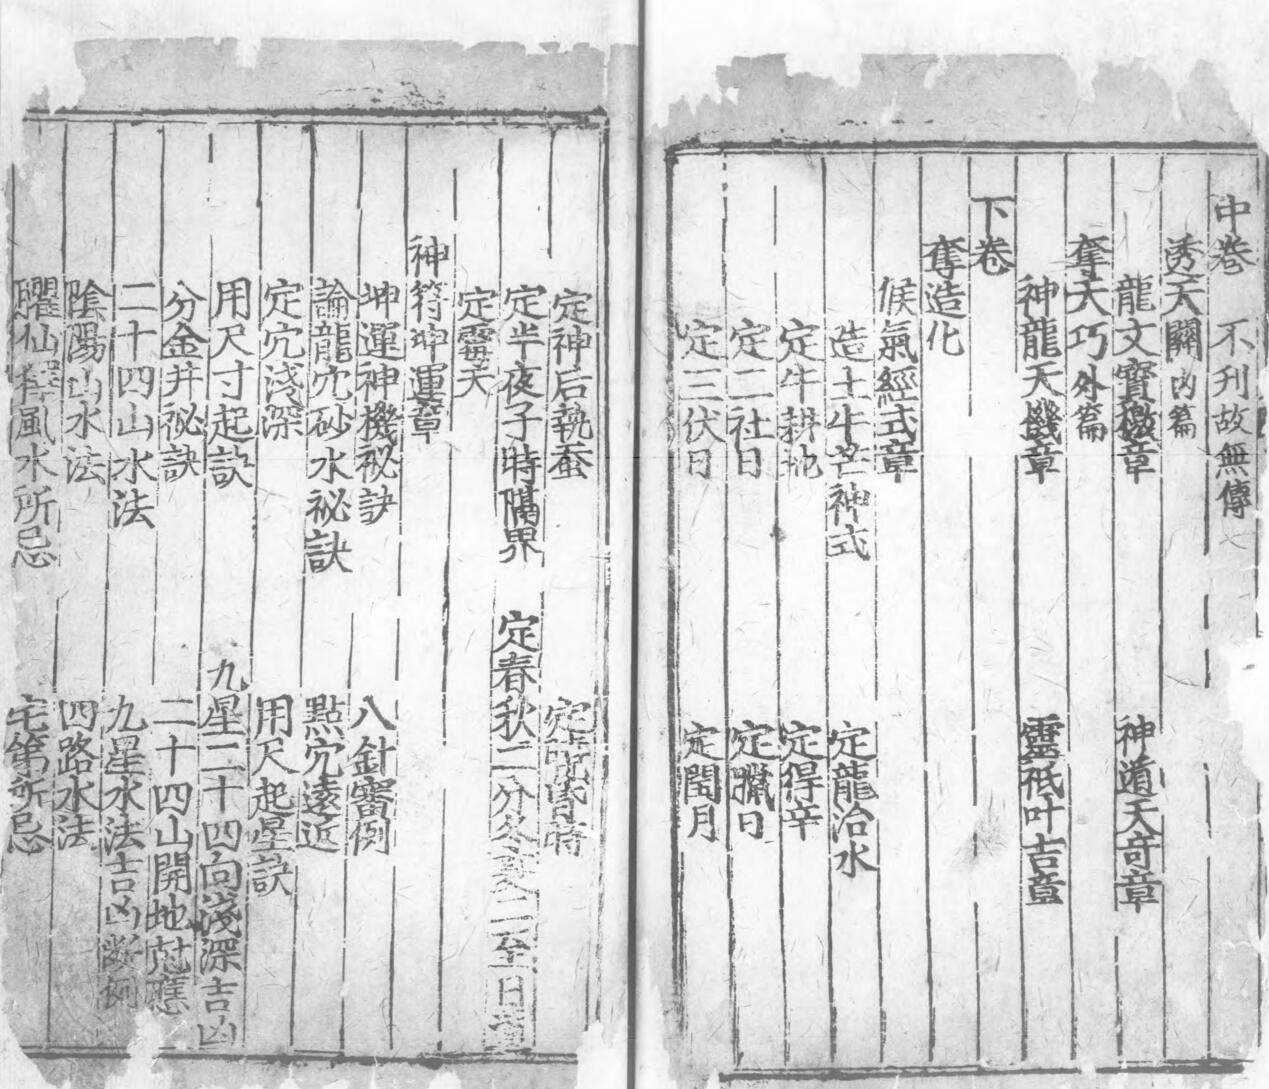 中卷　不刋故無傳
透天關内篇
龍文寶檄章　神道天奇章
奪天巧外篇
神龍天機章　靈祇叶吉章
下卷
奪造化
候氣經式章
造土牛芒神式　定龍治水
定牛耕地　定得辛
定二社日　定臘日
定三伏日　定閏月
定神后執蚕
定半夜子時隔界　定春秋二分冬夏二至日
定霉天
神符坤運章
坤運神機秘訣　八針審例
論龍穴砂水祕訣　點穴遠近
定穴淺深　用天起星訣
用尺寸起訣　九星二十四向淺深吉凶
分金井祕訣　二十四山開地尅應
二十四山水法　九星水法吉凶断例
陰陽山水法　四路水法
臞仙擇風水所忌　宅第所忌